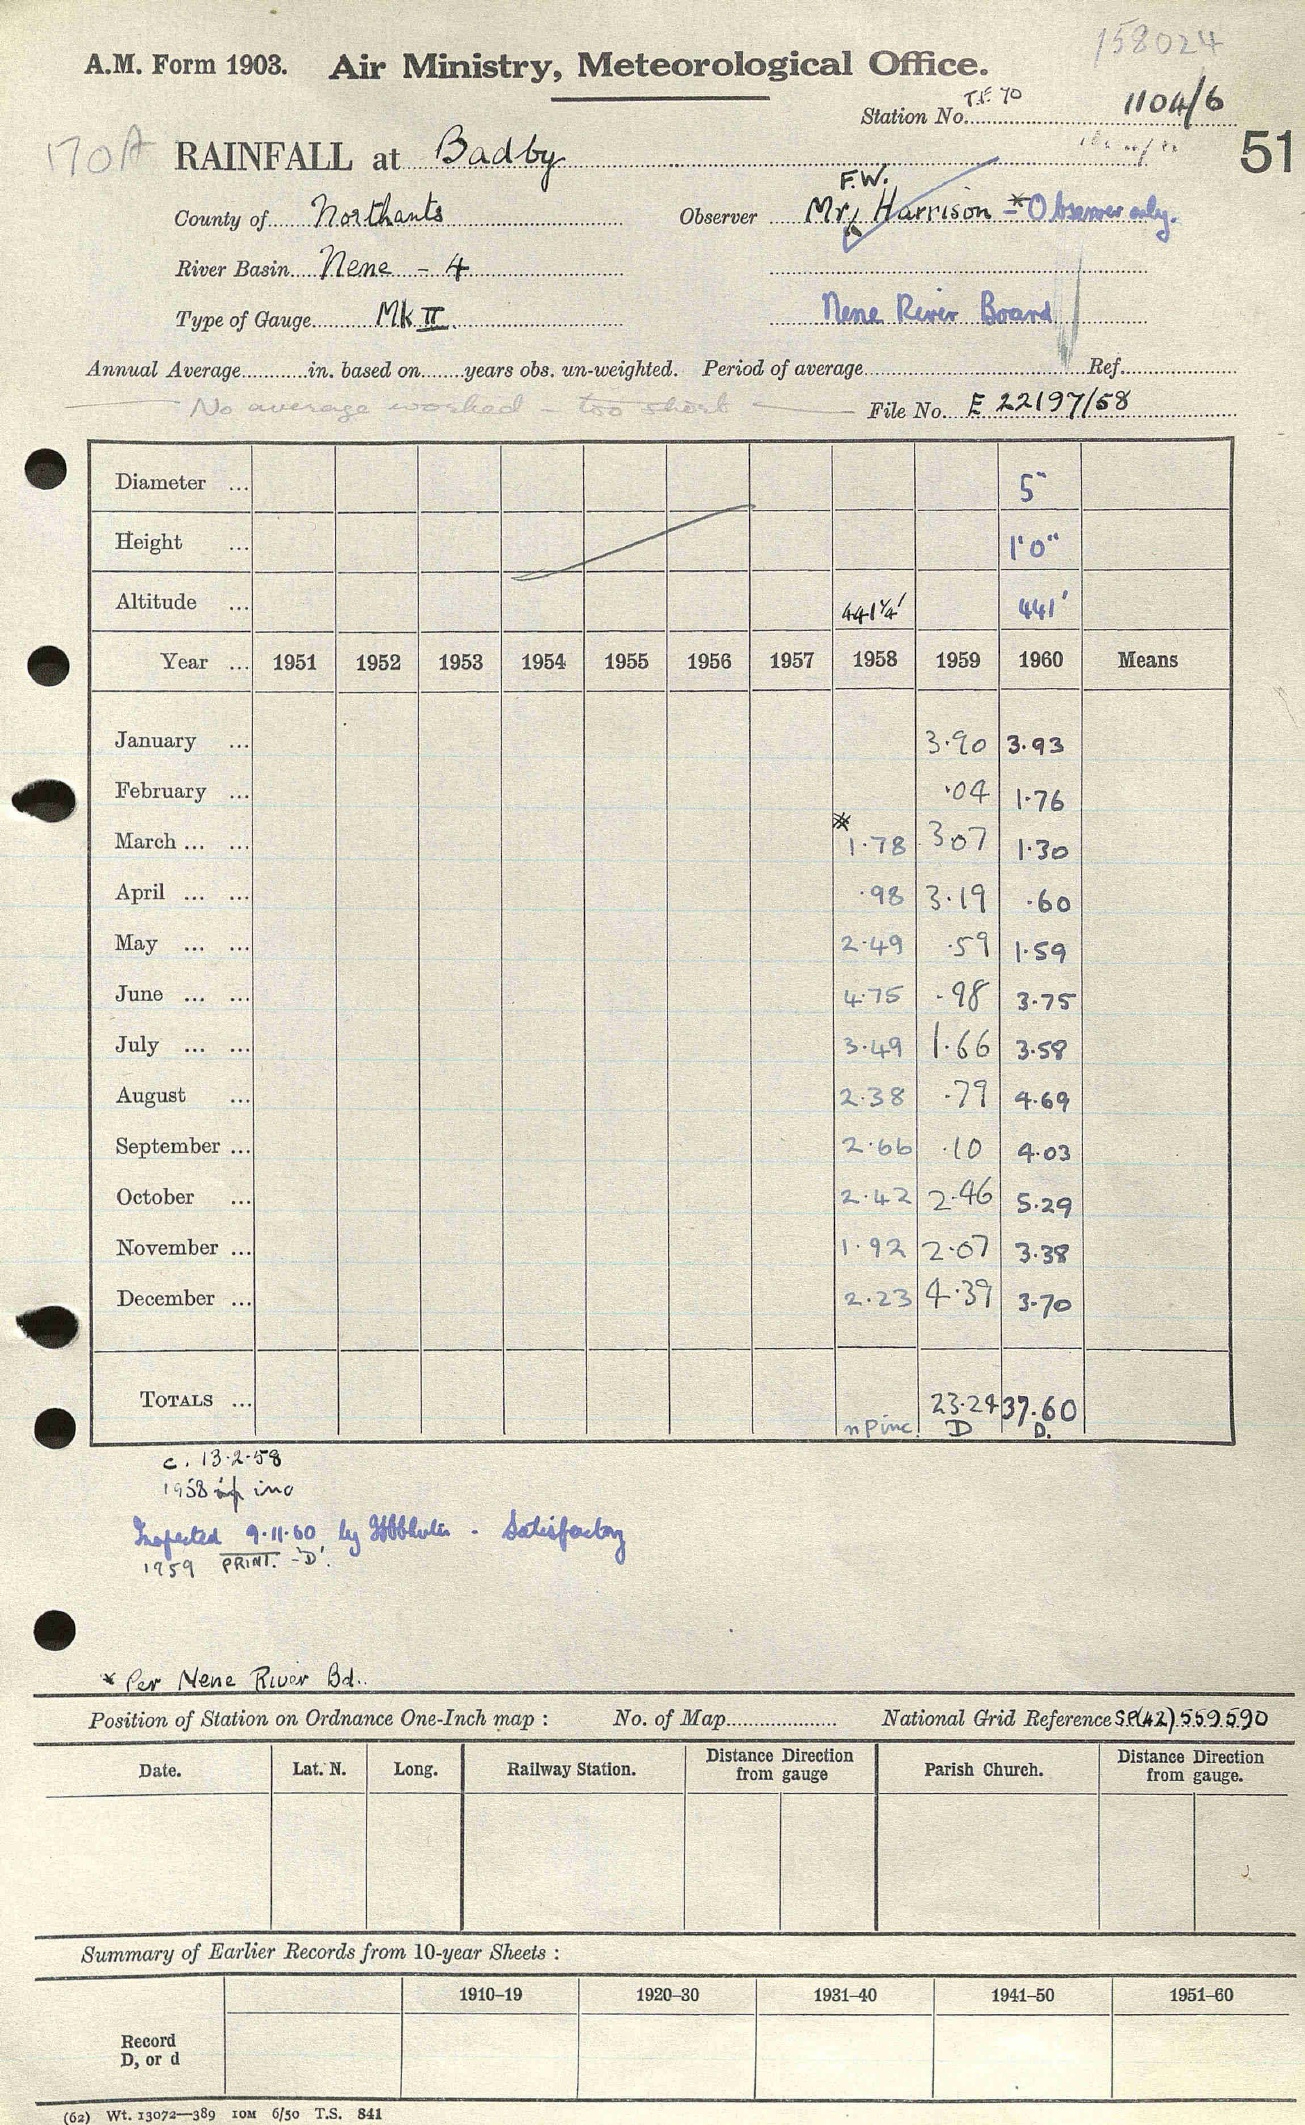 158024
A.M. Form 1903. Air Ministry, Meteorological Office.
T.F. 70
Station No. 1104/6
170A
RAINFALL at Badby
51
F.W.
County of Northants Observer Mr, Harrison - *Observer only.
River Basin Nene - 4
Type of Gauge MK II Nene River Board
Annual Average in. based on years obs. un-weighted. Period of average Ref.
No average worked - too short
File No. E 22197/58
Diameter ... 5"
Height ... 1'0"
Altitude ... 441¼' 441'
Year ... 1951 1952 1953 1954 1955 1956 1957 1958 1959 1960 Means
January ... 3.90 3.93
February ... .04 1.76
*
March ... ... 1.78 3.07 1.30
April ... ... .98 3.19 .60
May ... ... 2.49 .59 1.59
June ... ... 4.75 .98 3.75
July ... ... 3.49 1.66 3.58
August ... 2.38 .79 4.69
September ... 2.66 .10 4.03
October ... 2.42 2.46 5.29
November ... 1.92 2.07 3.38
December ... 2.23 4.39 3.70
TOTALS ... 23.24 37.60
npinc. D D.
c. 13.2.58
1958 inc
Inspected 9.11.60 by - Satisfactory
1959 PRINT. - 'D'.
* Per Nene River Bd..
Position of Station on Ordnance One-Inch map : No. of Map National Grid Reference SP(42).559590
Date. Lat. N. Long. Railway Station. Distance Direction from gauge Parish Church. Distance Direction from gauge.
Summary of Earlier Records from 10-year Sheets :
1910–19 1920–30 1931–40 1941–50 1951–60
Record
D, or d
(62) Wt. 13072—389 10M 6/50 T.S. 841